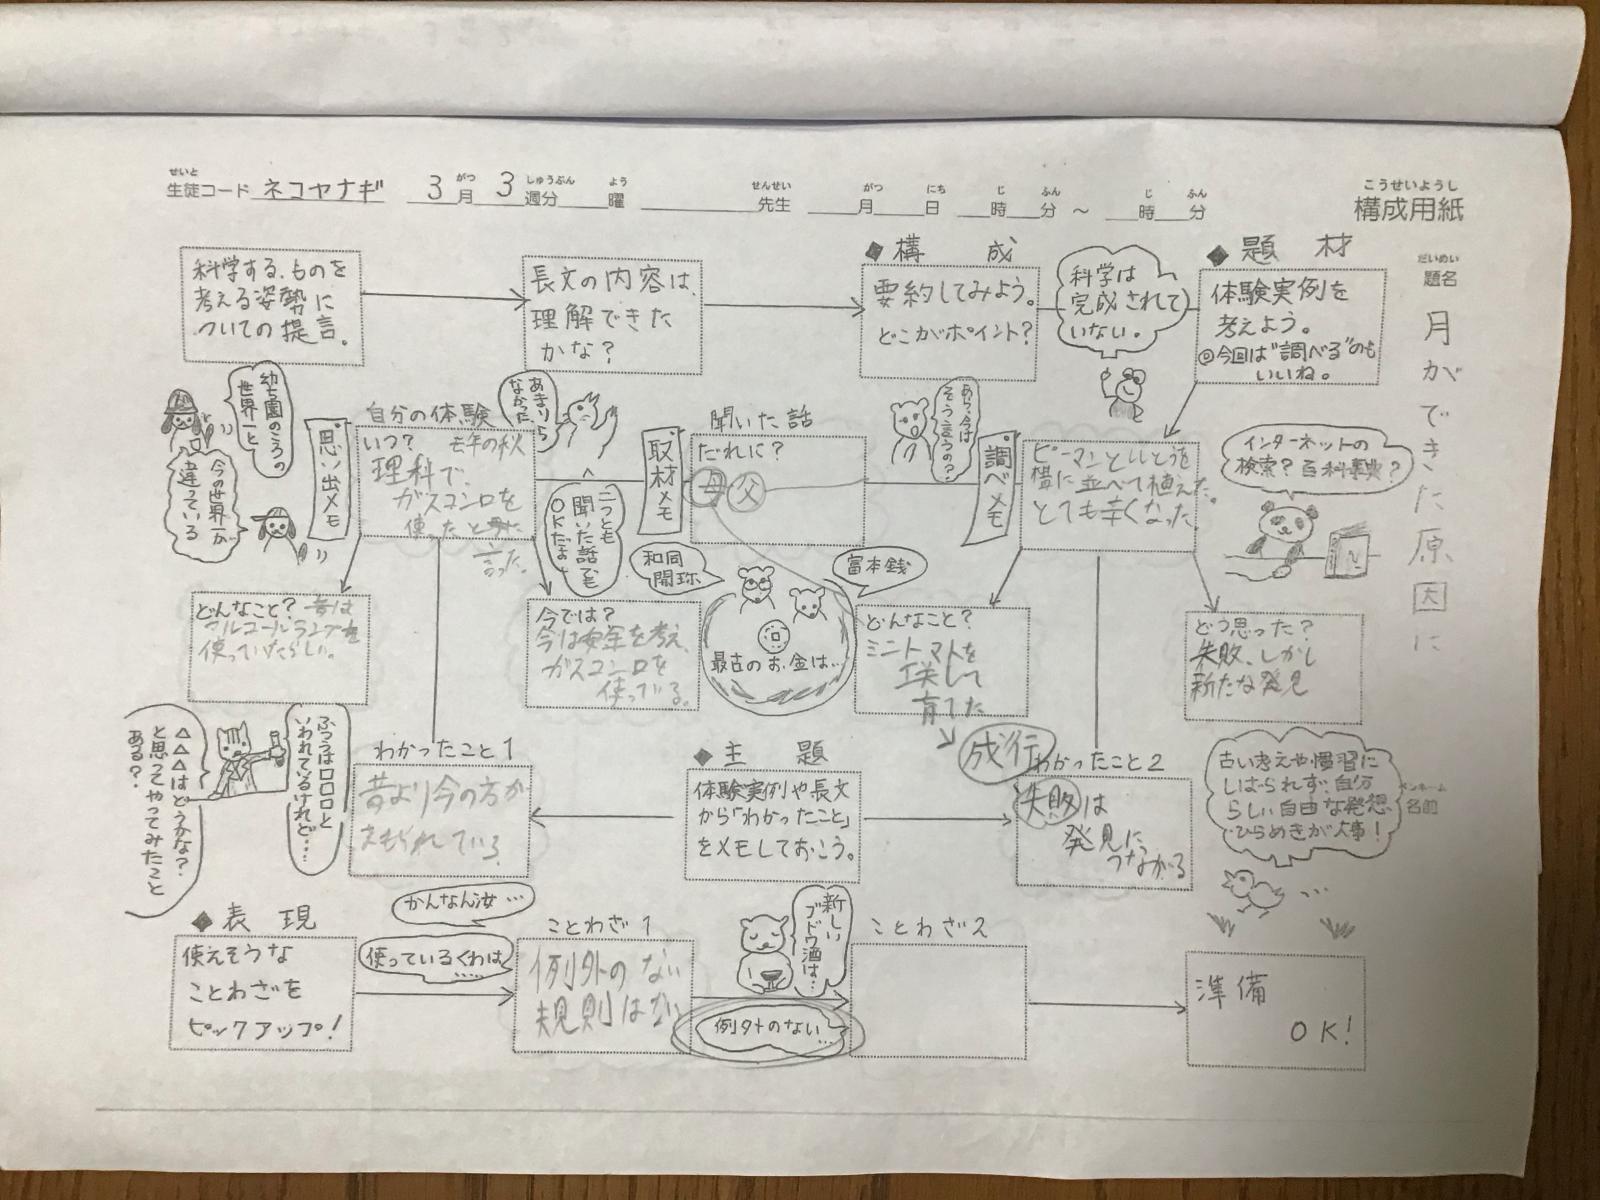 せいと
生徒コード ネコヤナギ 3月 3週分 曜 先生 月 日 時 分 ～ 時 分
がつ しゅうぶん よう せんせい がつ にち じ ふん じ ふん
こうせいようし
構成用紙
だいめい
題名
月ができた原因に
科学する、ものを
考える姿勢に
ついての提言。
長文の内容は、
理解できた
かな？
◆構成
要約してみよう。
どこがポイント？
科学は
完成されて
いない。
◆題材
体験実例を
考えよう。
◎今回は"調べる"のも
いいね。
幼ち園のころの
世界一と
今の世界一が
違っている
思い出メモ
自分の体験
いつ？ 去年の秋
理科で、
ガスコンロを
使ったと
言った。
あまりら
なかった
二つとも
聞いた話でも
OKだよ
取材メモ
聞いた話
だれに？
母 父
あら、今は
そう言うの？
調べメモ
ピーマンとししとうを
横に並べて植えた。
とても辛くなった。
インターネットの
検索？ 百科事典？
どんなこと？ 昔は
アルコールランプを
使っていたらしい。
今では？
今は安全を考え、
ガスコンロを
使っている。
和同
開珎
富本銭
最古のお金は…
どんなこと？
ミニトマトを
工夫して
育てた
どう思った？
失敗、しかし
新たな発見
ふつうは□□□と
いわれているけれど…
△△△はどうかな？
と思ってやってみたこと
ある？
わかったこと1
昔より今の方が
◆主題
体験実例や長文
から「わかったこと」
をメモしておこう。
成行
わかったこと2
失敗は
発見に
つながる
古い考えや慣習に
しばられず、自分
らしい自由な発想、
ひらめきが大事！
ペンネーム
名前
◆表現
使えそうな
ことわざを
ピックアップ！
かんなん汝…
使っているくわは……
ことわざ1
例外のない
規則はない
新しい
ブドウ酒は…
例外のない…
ことわざ2
準備
OK！